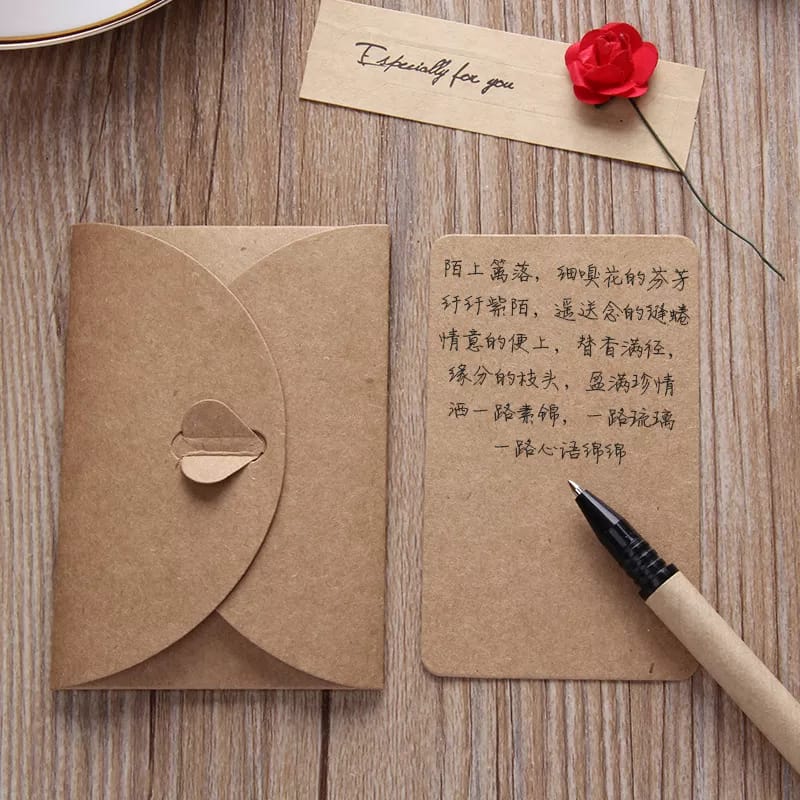 Especially for you
陌上篱落，细嗅花的芬芳
纤纤紫陌，遥送念的缱绻
情意的便上，替香满径，
缘分的枝头，盈满珍情
洒一路素锦，一路琉璃
一路心语绵绵